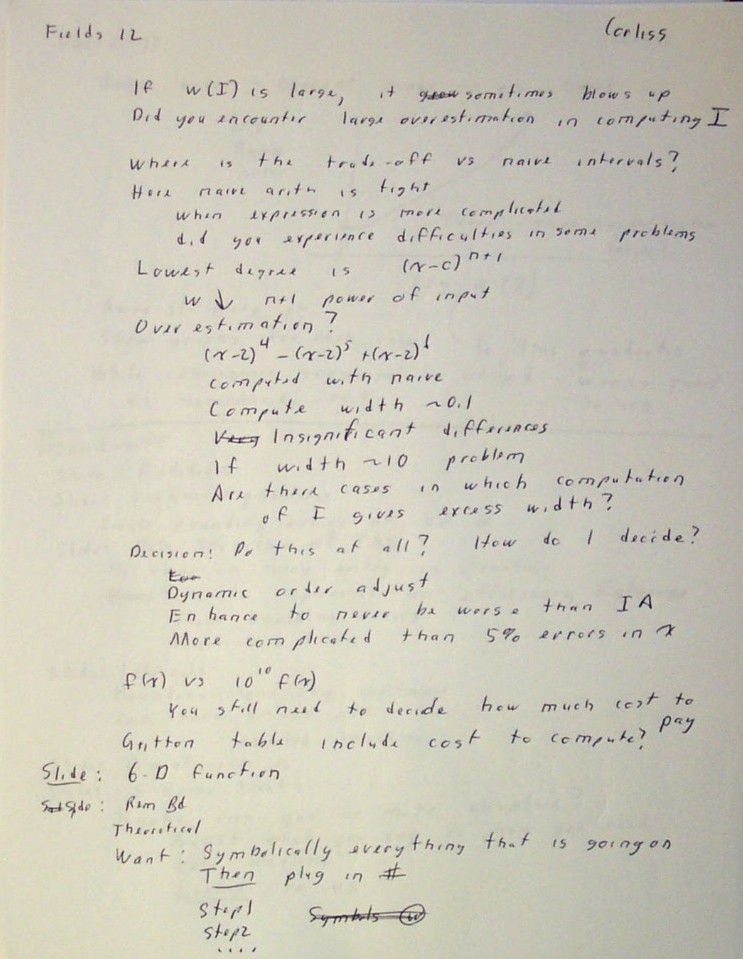 Fields 12 Corliss
If w(I) is large, it sometimes blows up
Did you encounter large overestimation in computing I
Where is the trade-off vs naive intervals?
Here naive arith is tight
When expression is more complicated
did you experience difficulties in some problems
Lowest degree is (x-c)^{n+1}
w ↓ n+1 power of input
Over estimation?
(x-2)^4 - (x-2)^5 + (x-2)^6
computed with naive
Compute width ~0.1
Very Insignificant differences
If width ~10 problem
Are there cases in which computation
of I gives excess width?
Decision: Do this at all? How do I decide?
Dynamic order adjust
Enhance to never be worse than IA
More complicated than 5% errors in x
f(x) vs 10^{10} f(x)
You still need to decide how much cost to
pay
table include cost to compute?
Slide: 6-D function
: Rem Bd
Theoretical
Want: Symbolically everything that is going on
Then plug in #
Step1 Symbols
Step2
....